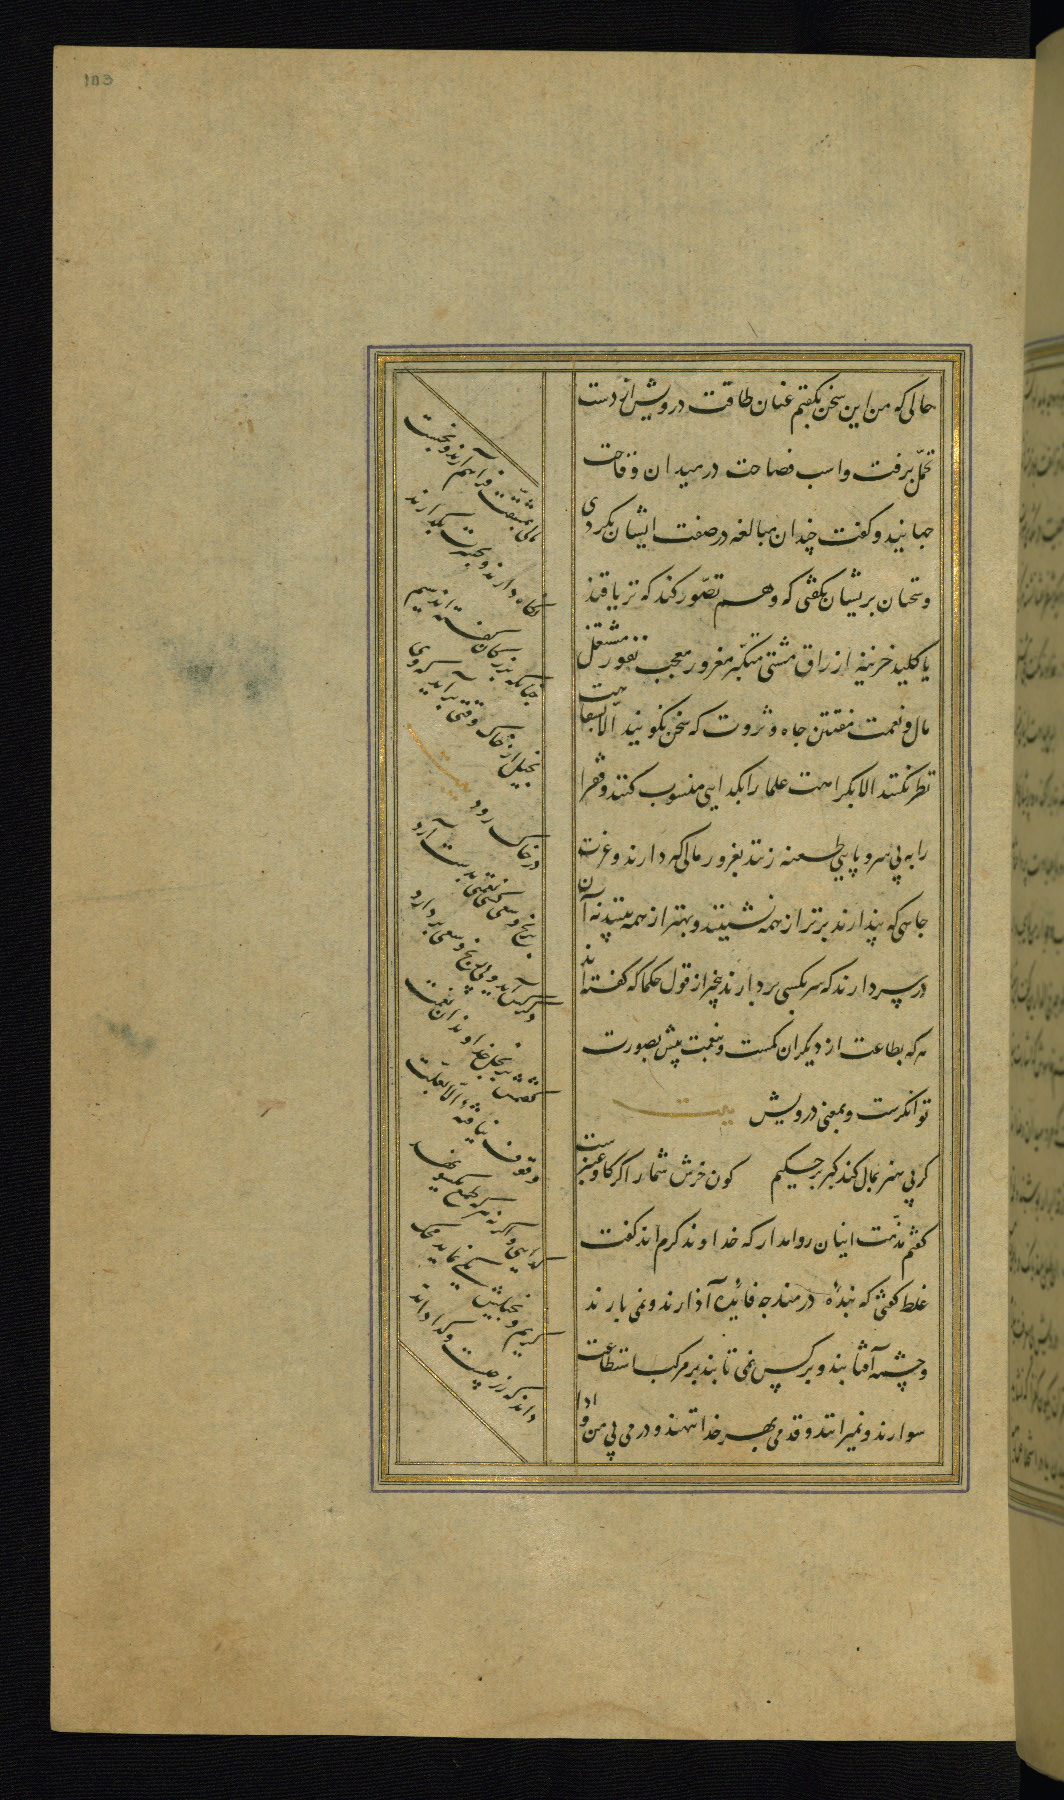 103
حالی که من این سخن بگفتم عنان طاقت درویش از دست
تحمّل برفت و اسب فصاحت در میدان وقاحت
جهانید و گفت چندان مبالغه در صفت ایشان بکردی
و سخنان پریشان بگفتی که وهم تصوّر کند که تریاقند
یا کلید خزینه ارزاق مشتی متکبّر مغرور معجب نفور مشتغل
مال و نعمت مفتتن جاه و ثروت که سخن نگویند الا بسفاهت
نظر نکنند الا بکراهت علما را بگدایی منسوب کنند و فقرا
را به بی سر و پایی طعنه زنند بغرور مالی که دارند و عزت
جاهی که پندارند برتر از همه نشینند و بهتر از همه بینند نه آن
در سر دارند که سر بکسی بردارند بیخبر از قول حکما که گفته اند
هر که بطاعت از دیگران کمست و بنعمت بیش بصورت
توانگرست و بمعنی درویش بیت
گر بی هنر بمال کند کبر بر حکیم کون خرش شمار اگر گاو عنبرست
گفتم مذمّت اینان روا مدار که خداوند کرم اند گفت
غلط گفتی که بندهٔ درمند چه فائده آذارند و نمی بارند
و چشمه آفتابند و بر کس نمی تابند بر مرکب استطاعت
سوارند و نمیرانند و قدمی بهر خدا ننهند و درمی بی من و اذا
مالی بمشقّت فراهم آرند و بخست
نگاه دارند و بحسرت بگذارند
چنانکه بزرگان گفته اند سیم
بخیل از خاک وقتی برآید که وی
در خاک رود بیت
برنج و سعی کسی نعمتی بدست آرد
دگر کس آید و بی رنج و سعی بردارد
گفتمش بر بخل خداوندان نعمت
وقوف نیافتهٔ الّا بعلّت
گدایی و اگر نه هر که طمع یکسو نهد
کریم و بخیلش یکی نماید محک
داند که زر چیست و گدا داند